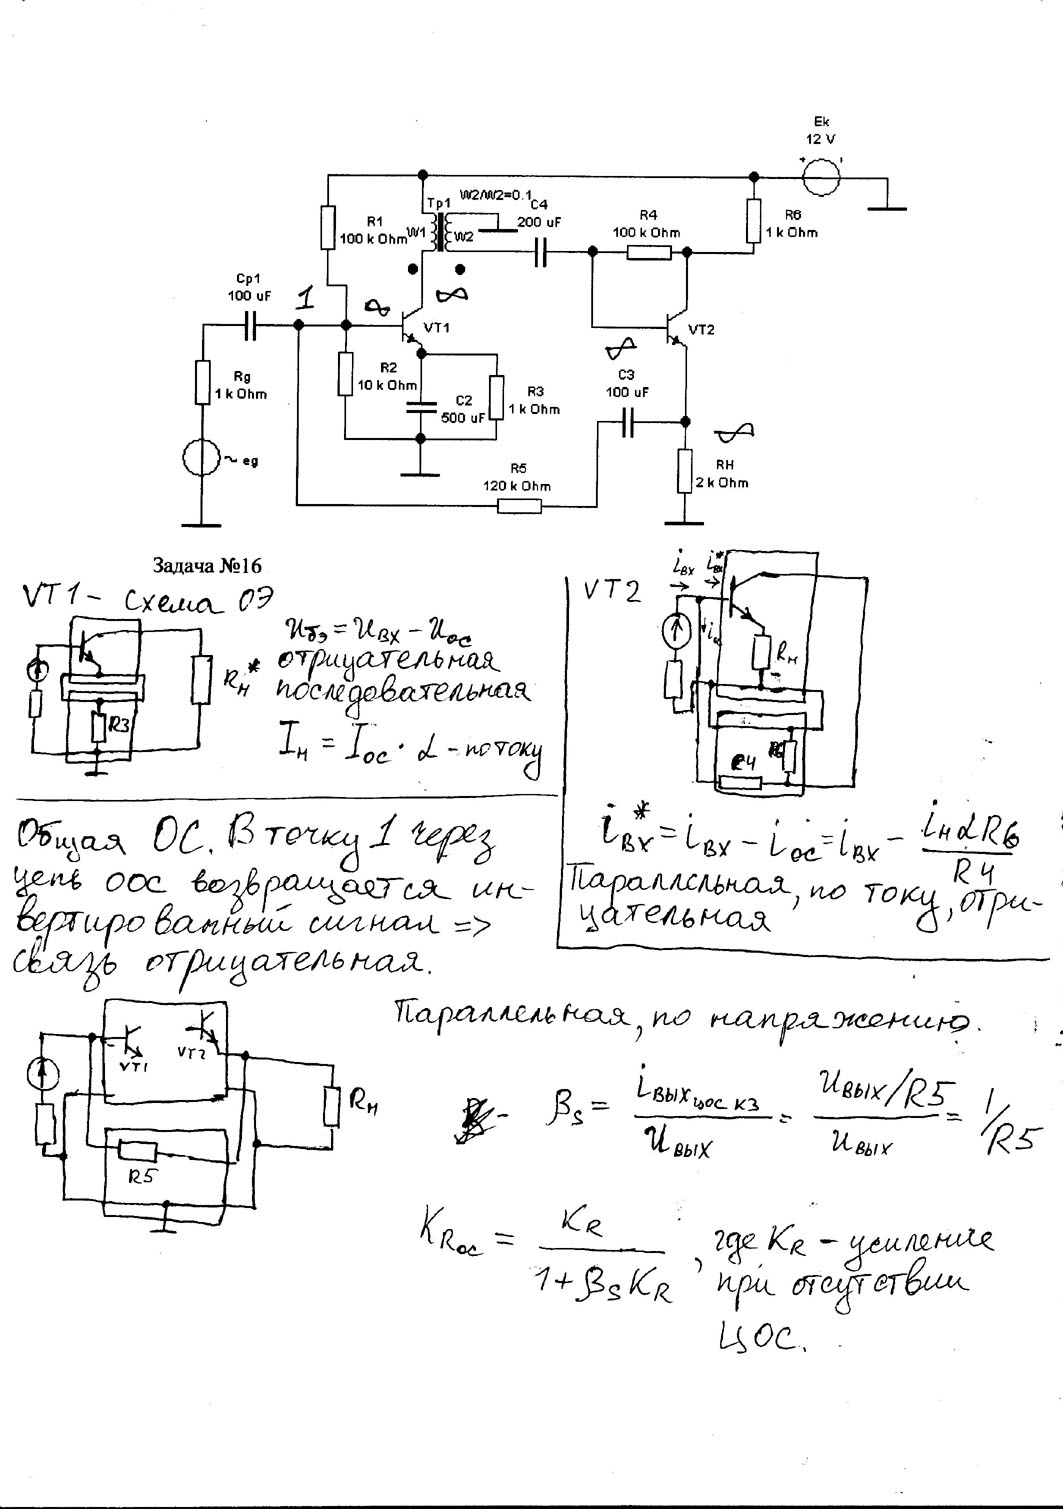 Ek
12 V
Tp1
W2/W2=0.1
C4
200 uF
R4
100 k Ohm
R6
1 k Ohm
R1
100 k Ohm
W1
W2
Cp1
100 uF
1
VT1
VT2
Rg
1 k Ohm
R2
10 k Ohm
C2
500 uF
R3
1 k Ohm
C3
100 uF
~ eg
R5
120 k Ohm
RH
2 k Ohm
Задача №16
VT1 - схема ОЭ
Uбэ = Uвх - Uос
отрицательная
последовательная
Iн = Iос · α - по току
Rн*
R3
VT2
iвх iвх*
iос
Rн
R4
R6
iвх* = iвх - iос = iвх - iнαR6/R4
Параллельная, по току, отри-
цательная
Общая ОС. В точку 1 через
цепь оос возвращается ин-
вертированный сигнал =>
связь отрицательная.
VT1
VT2
Rн
R5
Параллельная, по напряжению.
βs = iвых цос кз / Uвых = Uвых/R5 / Uвых = 1/R5
KRос = KR / 1 + βsKR , где KR - усиление
при отсутствии
ЦОС.